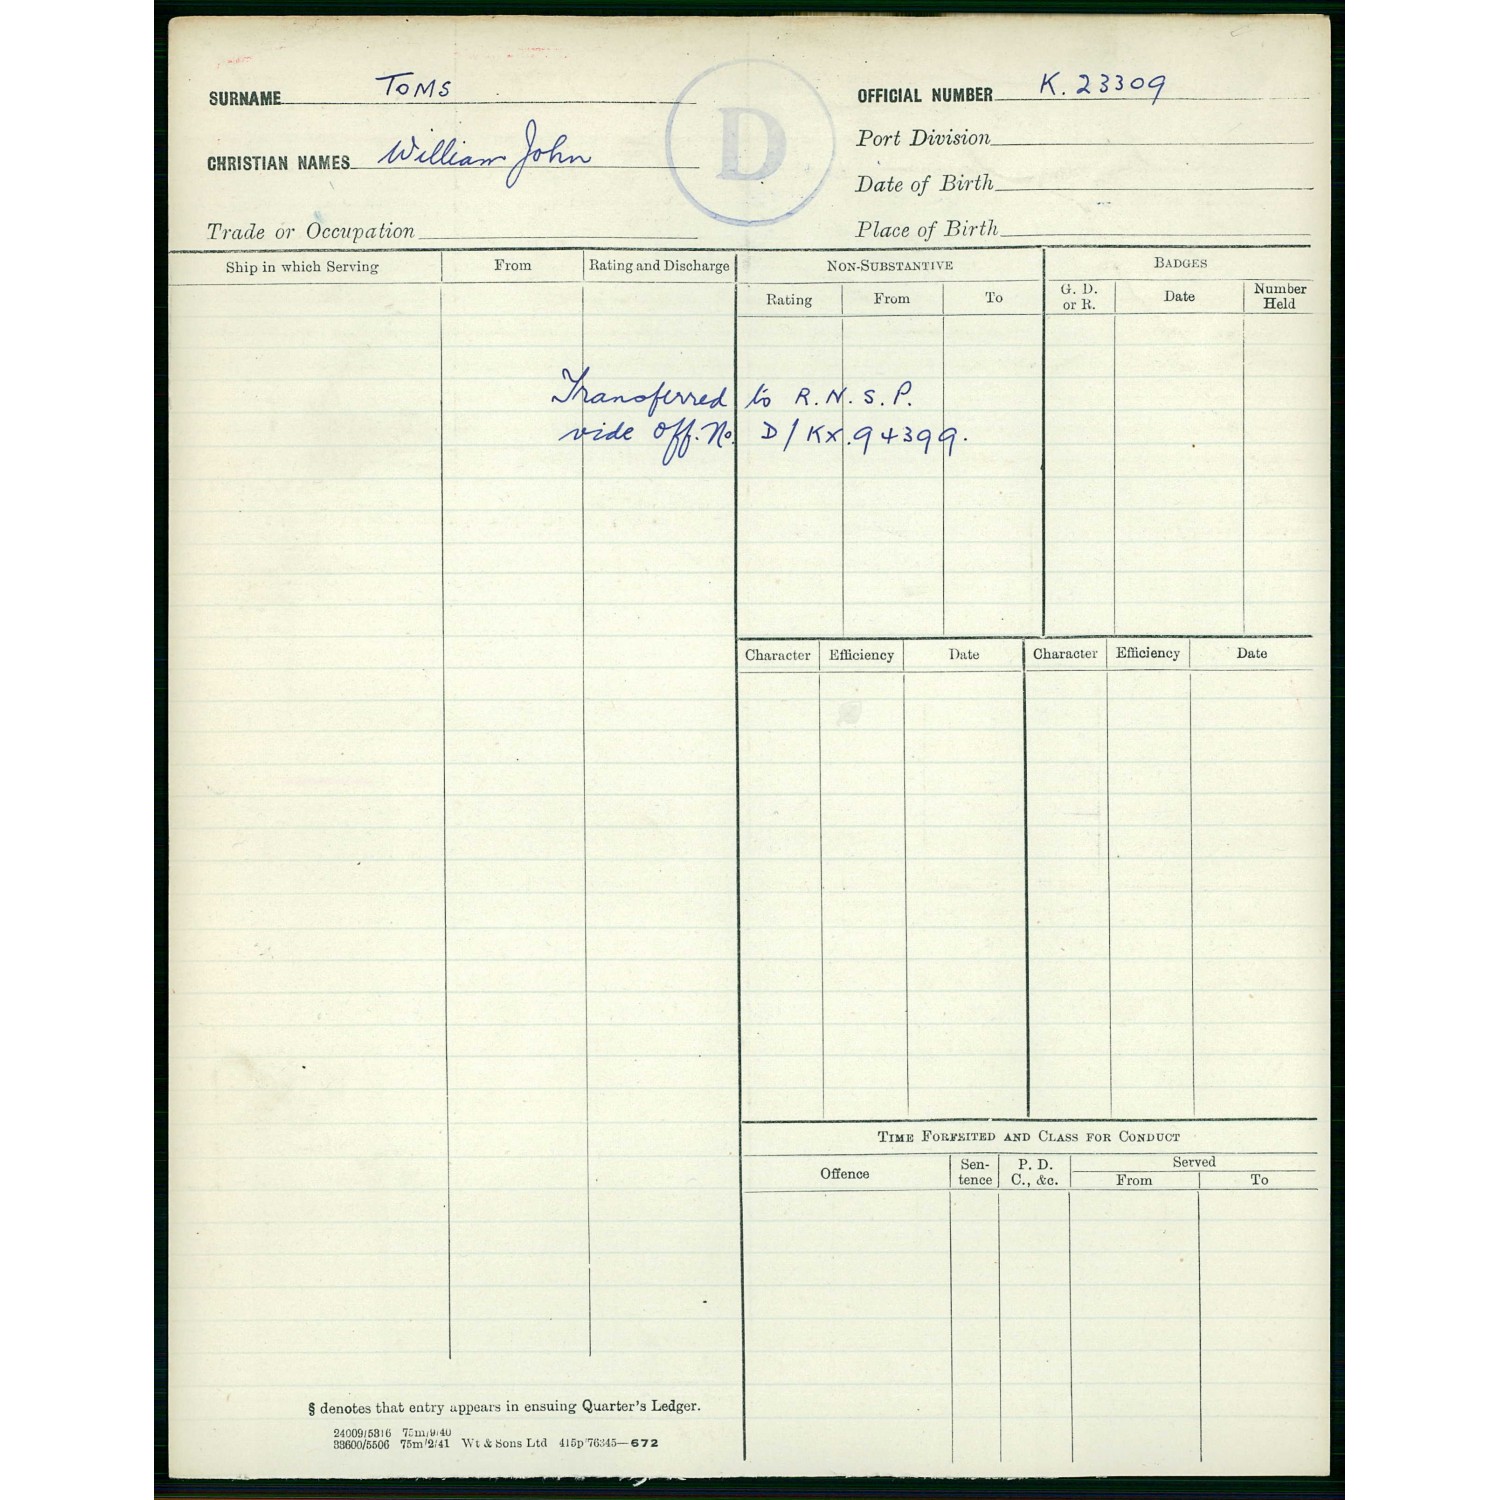 SURNAME TOMS
OFFICIAL NUMBER K. 23309
D
Port Division
CHRISTIAN NAMES William John
Date of Birth
Trade or Occupation
Place of Birth
Ship in which Serving From Rating and Discharge NON-SUBSTANTIVE BADGES
Rating From To G. D. or R. Date Number Held
Transferred to R.N.S.P.
vide Off. No. D/KX.94399.
Character Efficiency Date Character Efficiency Date
TIME FORFEITED AND CLASS FOR CONDUCT
Offence Sen-tence P. D. C., &c. Served
From To
§ denotes that entry appears in ensuing Quarter's Ledger.
24009/5316 75m/9/40
33600/5506 75m/2/41 Wt & Sons Ltd 415p/76345—672